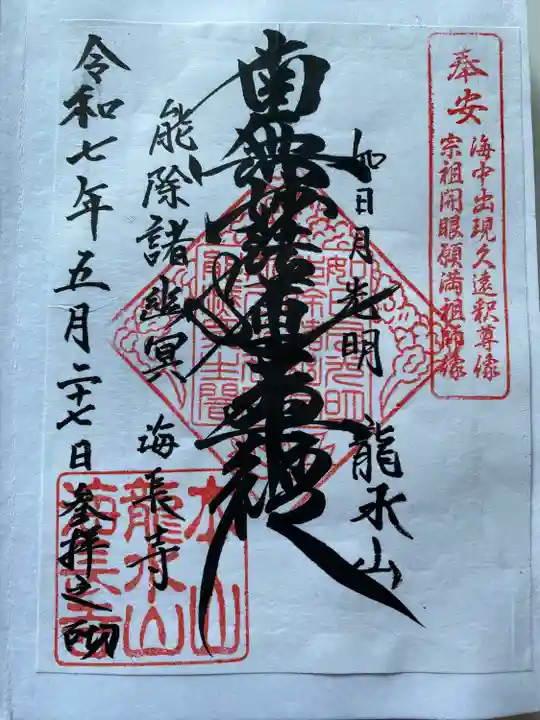 奉安
海中出現久遠釈尊像
宗祖開眼願満祖師像
如日月光明
龍水山
南無妙法蓮華経
能除諸幽冥
海長寺
令和七年五月二十七日参拝之砌
本山
龍水山
海長寺